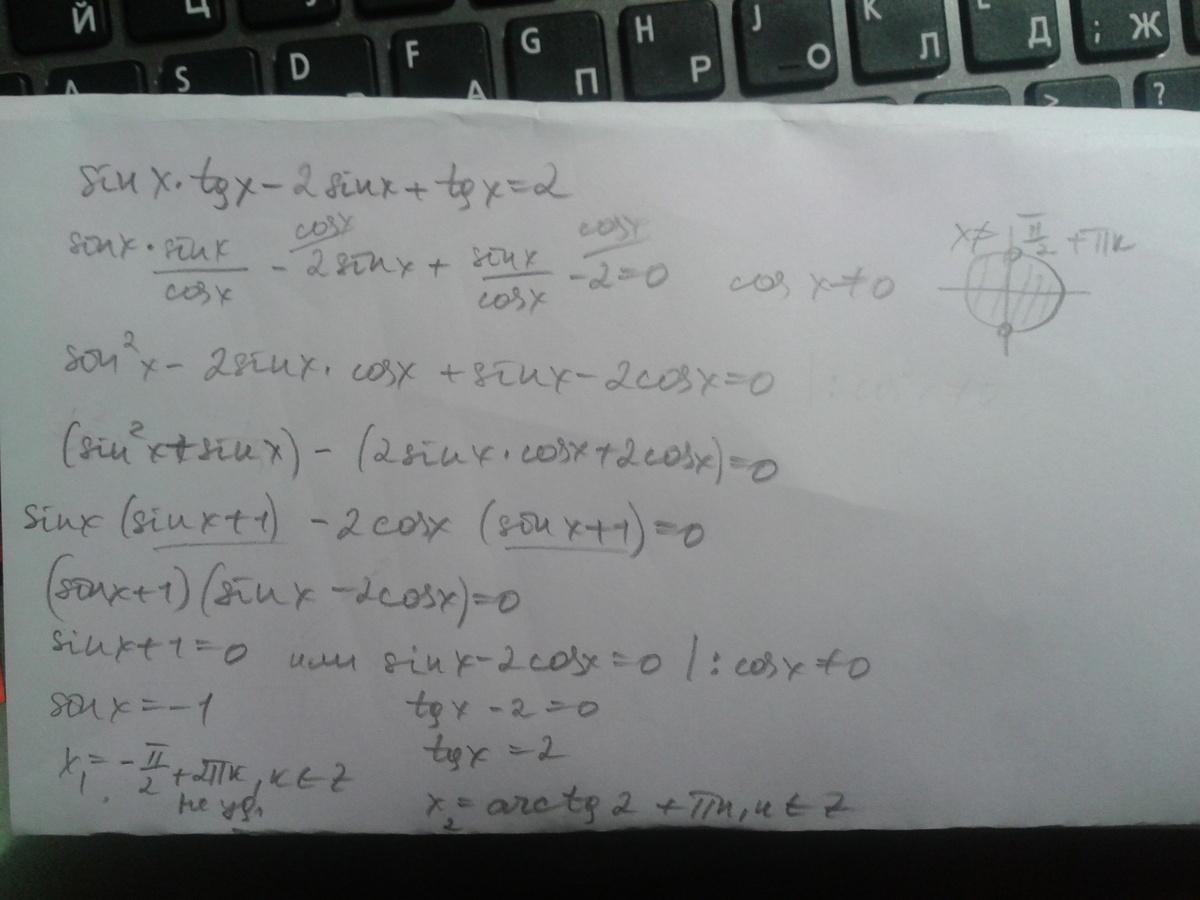 Й Ц
A S D F G П H Р J О К Л Д ; Ж
А > ?
sin x · tg x - 2 sin x + tg x = 2
cosx cosx
sinx · sinx/cosx - 2 sinx + sinx/cosx - 2 = 0 cos x ≠ 0 x ≠ π/2 + πk
sin²x - 2 sinx · cosx + sinx - 2cosx = 0
(sin²x + sinx) - (2 sinx · cosx + 2cosx) = 0
sinx (sinx + 1) - 2 cosx (sinx + 1) = 0
(sinx + 1) (sinx - 2cosx) = 0
sinx + 1 = 0 или sinx - 2cosx = 0 | : cosx ≠ 0
sinx = -1 tgx - 2 = 0
x₁ = -π/2 + 2πk, k ∈ Z tgx = 2
не уд. x₂ = arctg 2 + πn, n ∈ Z